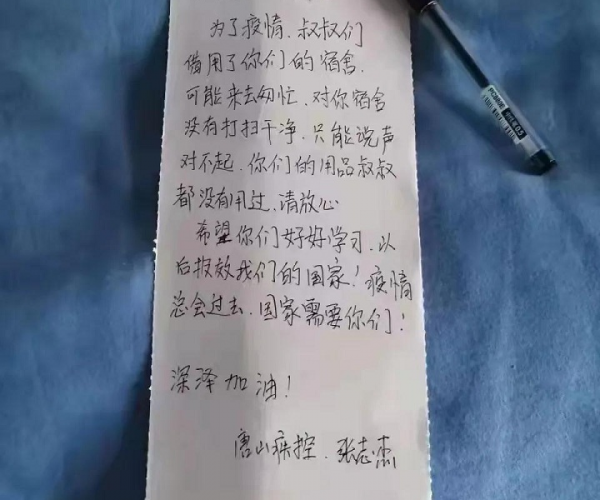 为了疫情、叔叔们
借用了你们的宿舍.
可能来去匆忙.对你宿舍
没有打扫干净.只能说声
对不起.你们的用品叔叔
都没有用过.请放心
希望你们好好学习.以
后报效我们的国家！疫情
总会过去.国家需要你们！
深泽加油！
唐山疾控.张志杰